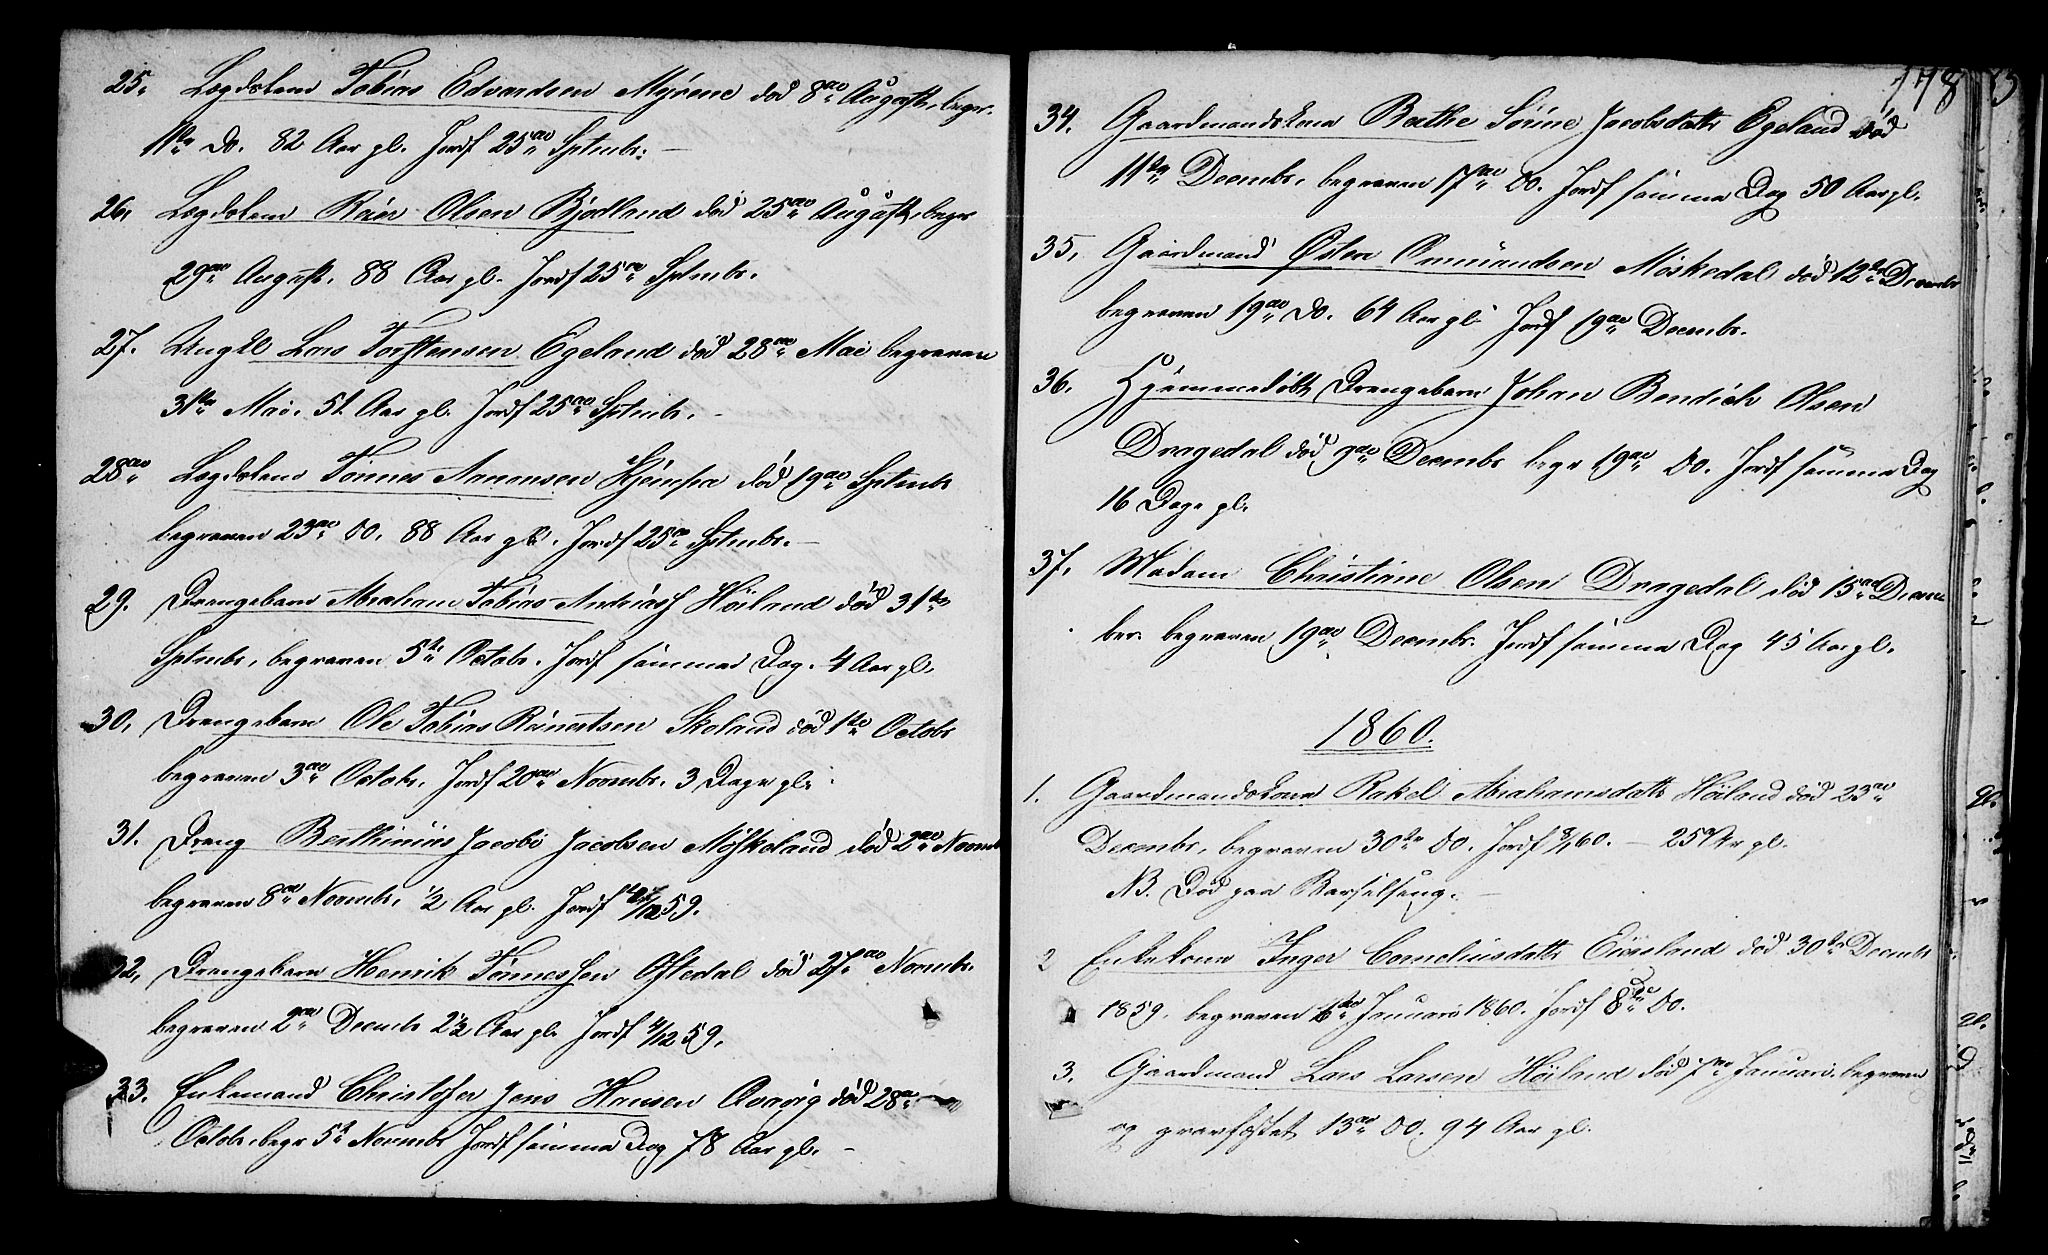 25. Lægdslem Tobias Edvardsen Myrene død 8de August, begr.
11te do. 82 Aar gl. Jordf 25de Septmbr. —
26. Lægdslem Reier Olsen Bjodland død 25de August, begr
29de August. 88 Aar gl. Jordf 25de Septmbr.
27. Ungkl Lars Torstensen Egeland død 28de Mai begraven
31te Mai. 51 Aar gl. Jordf 25de Septmbr. —
28de Lægdslem Tønnes Aanensen død 19de Septmbr
begraven 23de do. 88 Aar gl. Jordf 25de Septmbr. —
29. Drengebarn Abraham Tobias Andreass Høiland død 31te
Septmbr, begraven 5te Octobr. Jordf samme Dag. 4 Aar gl.
30. Drengebarn Ole Tobias Reinertsen Skoland død 1te Octobr
begraven 3de Octobr. Jordf 20de Novmbr. 3 Dage gl.
31. Dreng Berthinius Jacobi Jacobsen Møskeland død 2de Novmb
begraven 8de Novmbr. 1/2 Aar gl. Jordf /12 59.
32. Drengebarn Henrik Tønnessen Oftedal død 27de Novmbr.
begraven 2den Decmbr 2 1/2 Aar gl. Jordf 4/12 59.
33. Enkemand Christofer Jens Hansen død 28de
Octobr. begr 5te Novmbr Jordf samme Dag 78 Aar gl. —
178
34. Gaardmandskone Berthe Sørine Jacobsdattr Egeland død
11te Decmbr. begraven 17de do. Jordf samme Dag 50 Aar gl.
35. Gaardmand Østen Omundsen Møskedal død 12te Decmbr
begraven 19de do. 64 Aar gl. Jordf 19de Decmbr.
36. Hjemmedøbt Drengebarn Johan Bendich Olsen
Dragedal død 9de Decmbr begr 19de do. Jordf samme Dag
16 Dage gl.
37. Madam Christine Olsen Dragedal død 15de Decem
ber. begraven 19de Decmbr. Jordf samme Dag 45 Aar gl.
1860.
1. Gaardmandskone Rakel Abrahamsdattr Høiland død 23de
Decmbr, begraven 30te do. Jordf 8/1 60. — 25 Ar gl.
NB. Død paa Barselseng. —
2 Enkekone Inger Corneliusdattr Eiesland død 30te Decmbr
1859. begraven 6te Januari 1860. Jordf 8de do.
3. Gaardmand Lars Larsen Høiland død 7de Januari. begraven
og gravfæstet 13de do. 94 Aar gl.